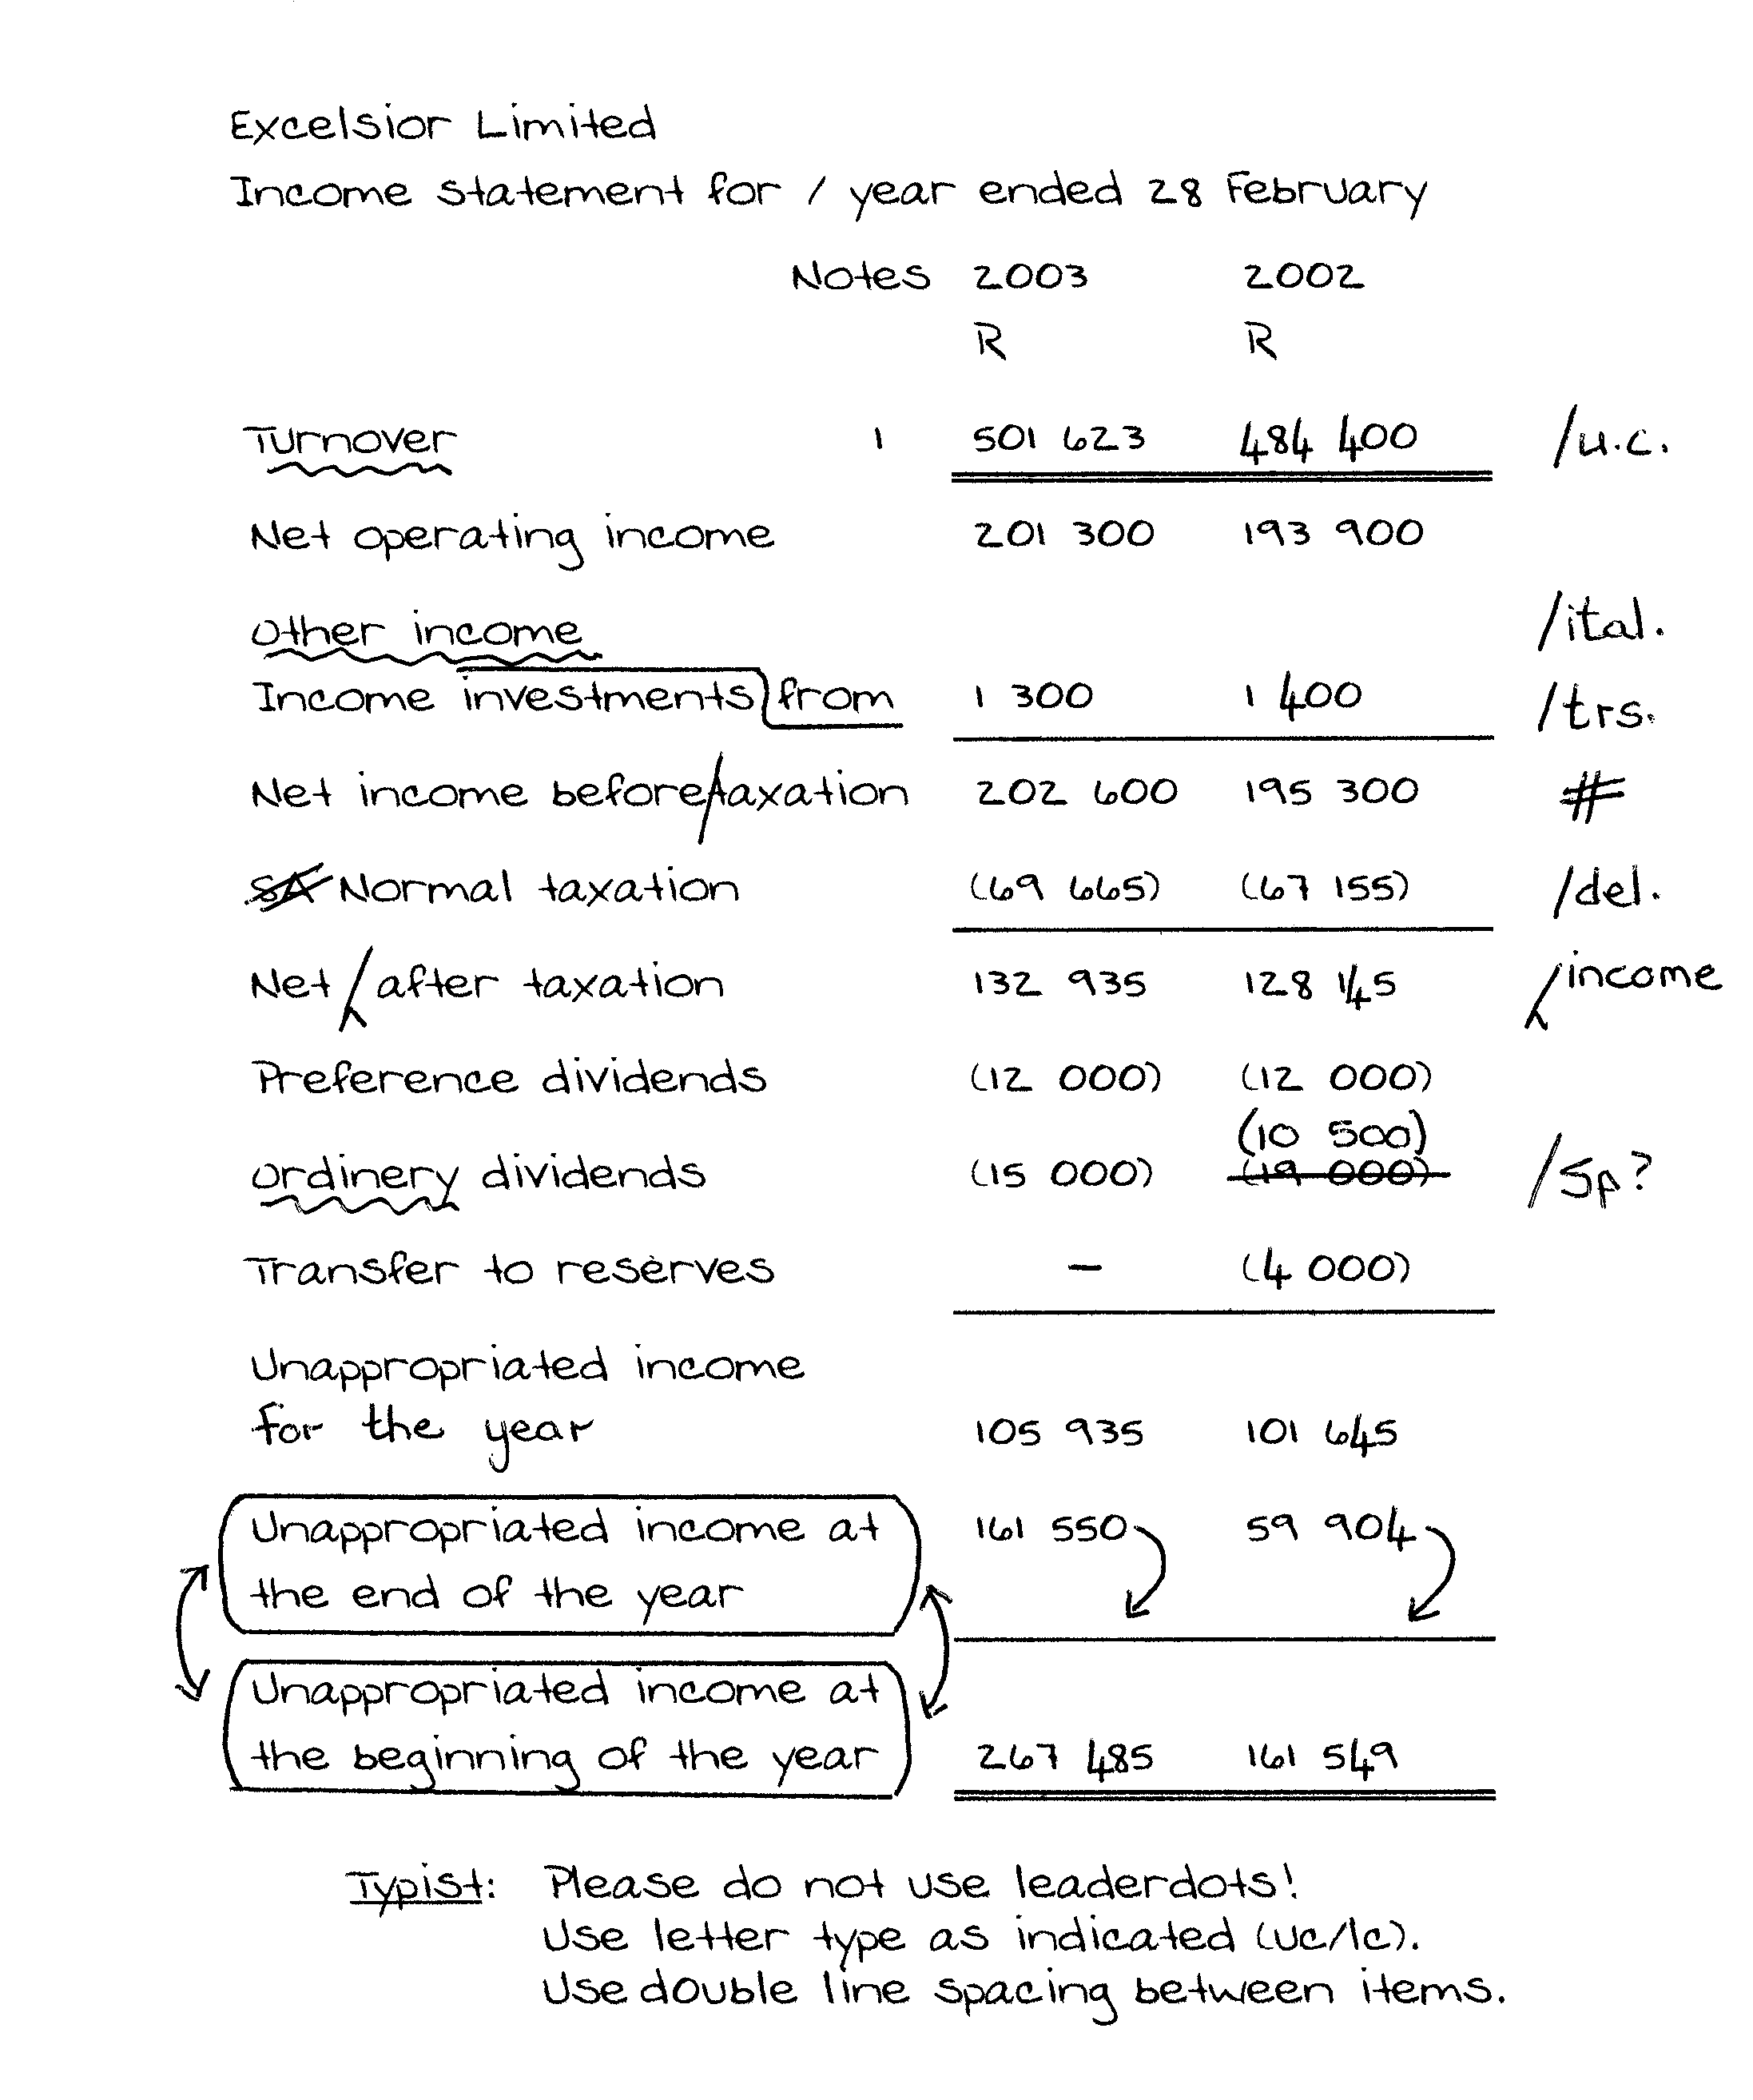 Excelsior Limited
Income statement for / year ended 28 February
Notes 2003 2002
R R
Turnover 1 501 623 484 400 /u.c.
Net operating income 201 300 193 900
Other income /ital.
Income investments from 1 300 1 400 /trs.
Net income before/taxation 202 600 195 300 #
SA Normal taxation (69 665) (67 155) /del.
Net / after taxation 132 935 128 145 /income
Preference dividends (12 000) (12 000)
(10 500)
Ordinery dividends (15 000) (19 000) /Sp?
Transfer to reserves - (4 000)
Unappropriated income
for the year 105 935 101 645
Unappropriated income at 161 550 59 904
the end of the year
Unappropriated income at
the beginning of the year 267 485 161 549
Typist: Please do not use leaderdots!
Use letter type as indicated (uc/lc).
Use double line spacing between items.